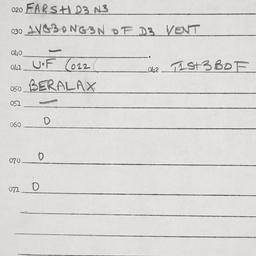 020 FARSHD3 N3
030 1VB3ONG3N OF D3 VENT
040 —
041 U.F (022 042 T1SH3BOF
050 BERALAX
051 —
060 D
070 D
071 D